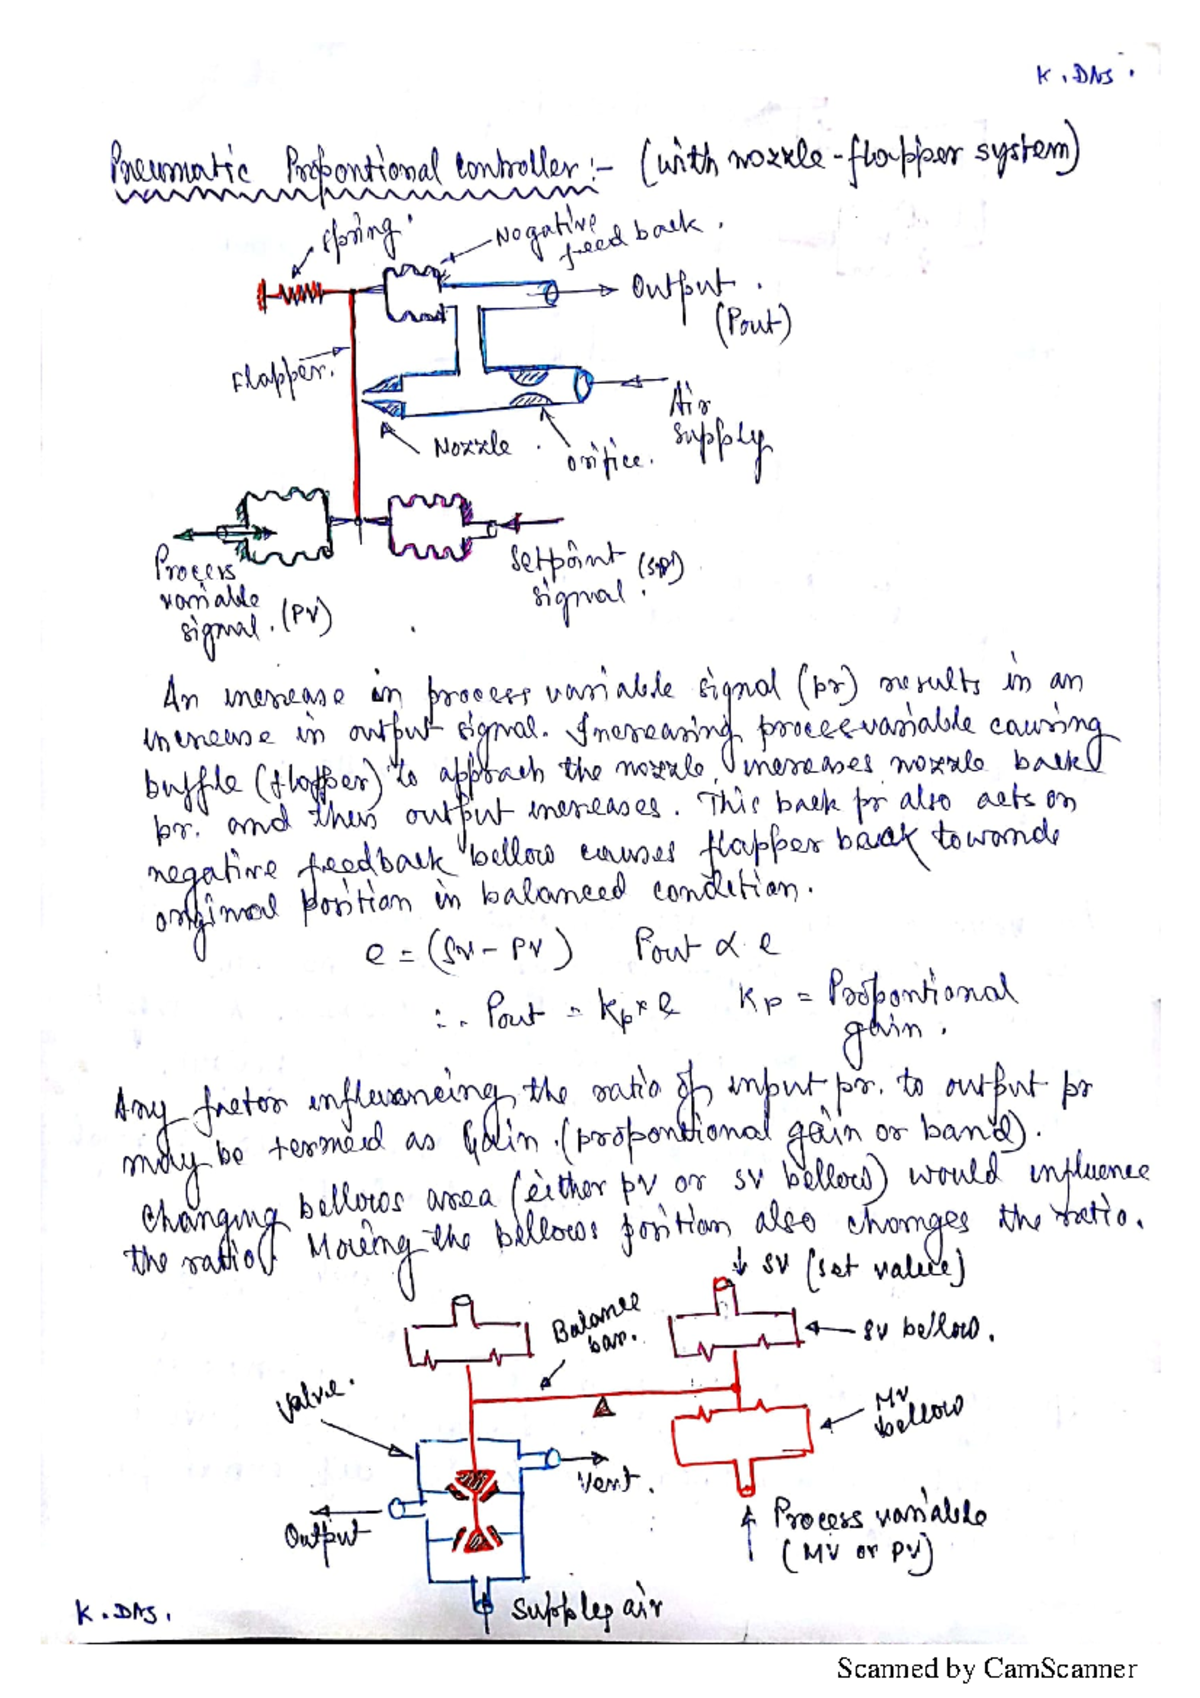 K. DAS.
Pneumatic Propontional controller:- (with nozzle-flapper system)
Spring.
Nogative
feed back.
Output.
(Pout)
Flapper.
Air
supply
Nozzle.
orifice.
Process
variable
signal. (PV)
Setpoint (SP)
signal.
An increase in process variable signal (pr) results in an
increase in output signal. Increasing process variable causing
buffle (flapper) to approach the nozzle, increases nozzle back
pr. and then output increases. This back pr also acts on
negative feedback bellow causes flapper back towards
original position in balanced condition.
e = (SV - PV) Pout α e
∴ Pout = Kp*e Kp = Propontional
gain.
Any factor influencing the ratio of input pr. to output pr
may be termed as Gain. (propontional gain or band).
Changing bellows area (either pv or sv bellow) would influence
the ratio. Moving the bellows position also changes the ratio.
SV (set value)
Balance
bar.
SV bellow.
Valve.
MV
bellow
Vent.
Output
Process variable
(MV or PV)
K. DAS.
Supply air
Scanned by CamScanner